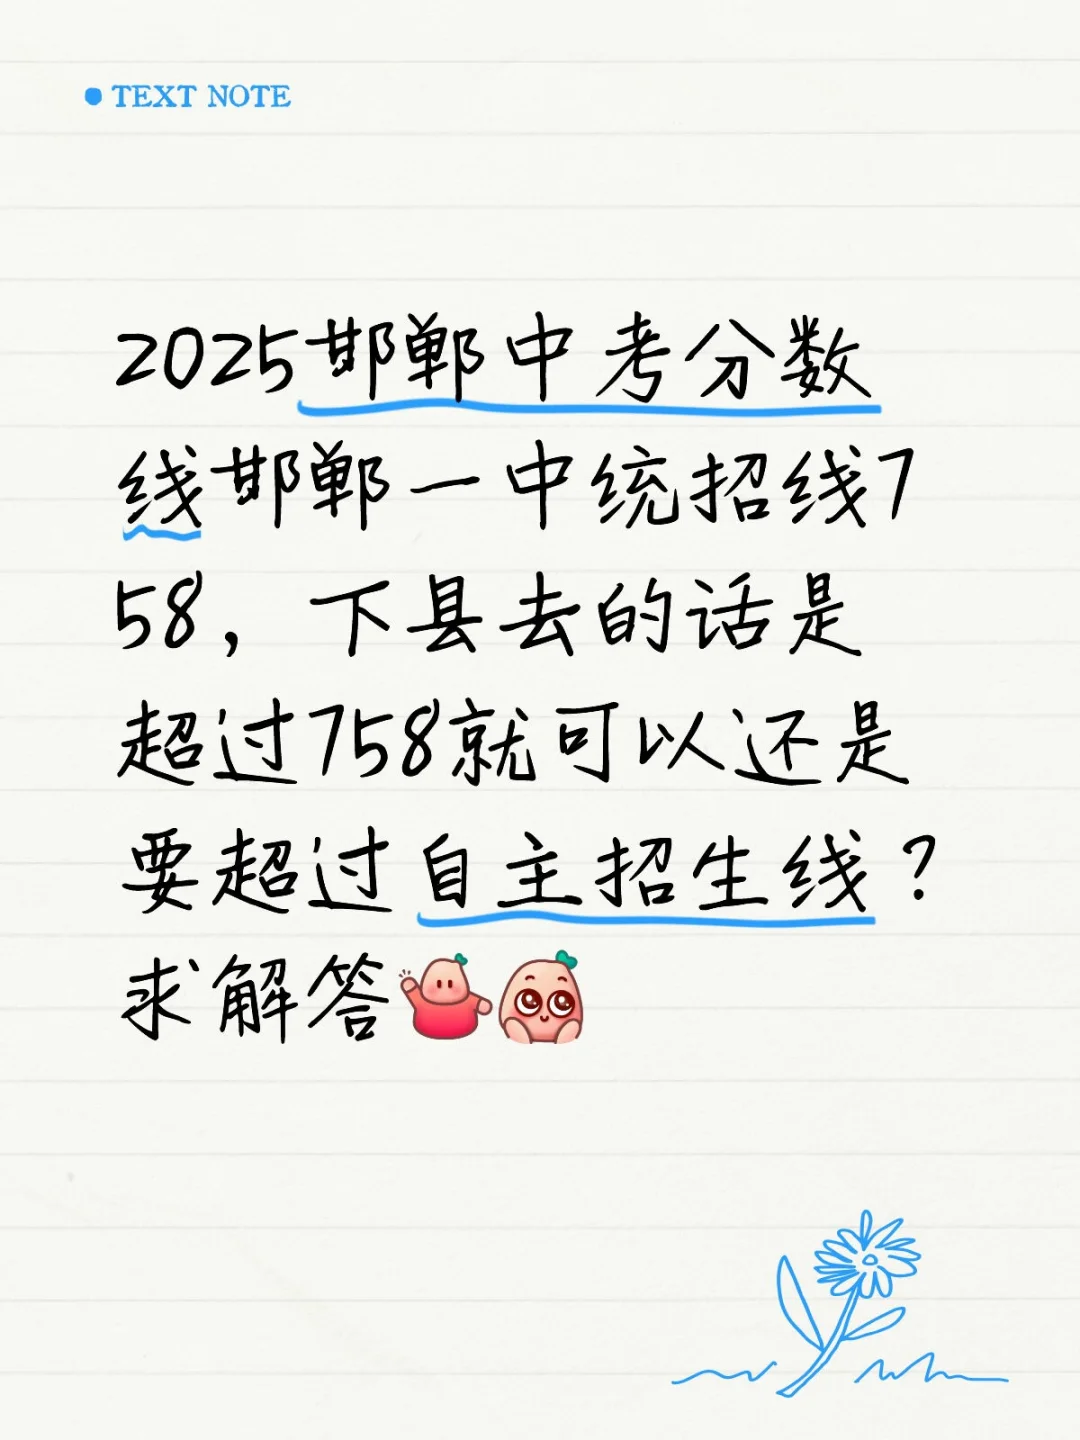 TEXT NOTE
2025邯郸中考分数
线邯郸一中统招线7
58，下县去的话是
超过758就可以还是
要超过自主招生线？
求解答